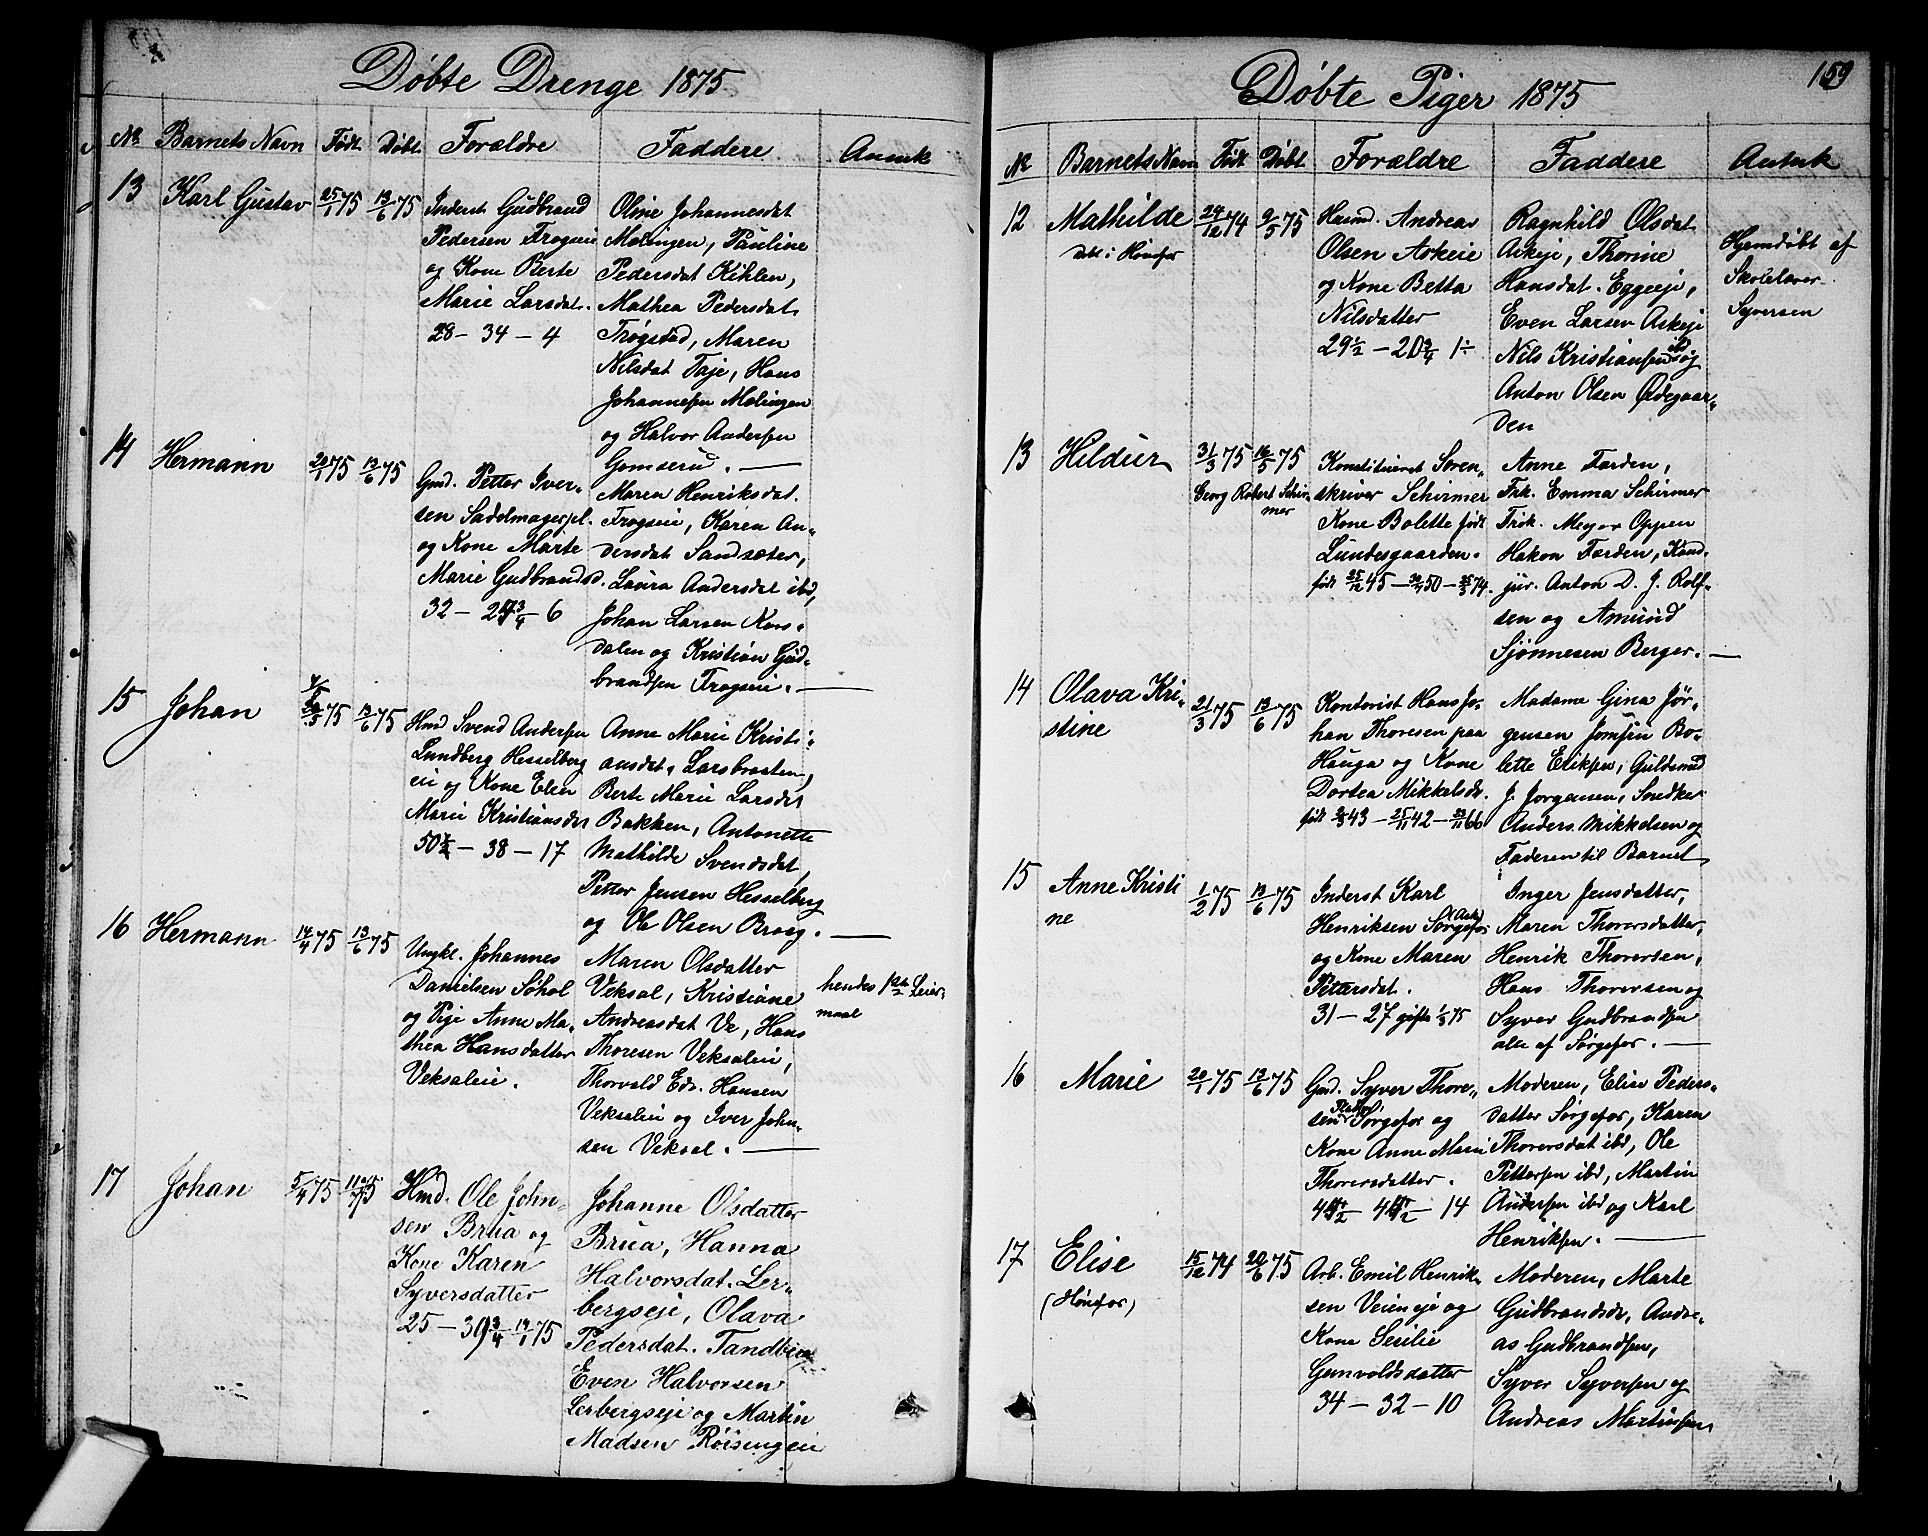 Døbte Drenge 1875
No Barnets Navn Født Døbt Forældre Faddere Anmk
13 Karl Gustav 25/1 75 13/6 75
Inderst Gudbrand
Pedersen Frogeie
og Kone Berte
Marie Larsdat.
28 - 34 - 4
Oline Johannesdat
Molingen, Pauline
Pedersdat Kihlen,
Mathea Pedersdat
Trøgstad, Maren
Nilsdat Faje, Hans
Johannesen Molingen
og Halvor Andersen
Gomserud.
14 Hermann 20/1 75 13/6 75
Gmd. Petter Iver-
sen Sadelmagerpl.
og Kone Marte
Marie Gudbrandsd.
32 - 6
Maren Henriksdat.
Frogeie, Karen An-
dersdat Sandsæter,
Laura Andersdat ibd,
Johan Larsen Kors-
dalen og Kristian Gud-
brandsen Frogeie.
15 Johan 75 13/6 75
Hmd Svend Andersen
Lundberg Hesselberg
eie og Kone Elen
Marie Kristiansdat
50½ - 38 - 17
Anne Marie Kristi-
ansdat. Larsbraaten,
Berte Marie Larsdat
Bakken, Antonette
Mathilde Svendsdat,
Petter Jensen Hesselberg
og Ole Olsen Braag.
16 Hermann 14/4 75 13/6 75
Ungkl. Johannes
Danielsen Søhol
og Pige Anne Ma-
thea Hansdatter
Veksaleie.
Maren Olsdatter
Veksal, Kristiane
Andreasdat Ve, Hans
Thoresen Veksaleie,
Thorvald Edv. Hansen
Veksaleie og Iver John-
sen Veksal.
hendes 1ste Leier-
maal
17 Johan 5/4 75 11/7 75
Hmd. Ole John-
sen Brua og
Kone Karen
Syversdatter
25 - 75
Johanne Olsdatter
Brua, Hanna
Halvorsdat. Ler-
bergseje, Olava
Pedersdat. Tandberg
Even Halvorsen
Lerbergseje og Martin
Madsen Röisingeie
Døbte Piger 1875
159
No Barnets Navn Født Døbt Forældre Faddere Anmk
12 Mathilde 24/12 74 9/5 75
døbt i Hønefos
Husmd. Andreas
Olsen Askeie
og Kone Betta
Nilsdatter
29½ - 20¾ 1÷
Ragnhild Olsdat
Askeje, Thorine
Hansdat. Eggeeje,
Even Larsen Askeje
Nils Kristiansen ibd og
Anton Olsen Ødegaar-
den
Hjemdøbt af
Skolelærer
Syversen
13 Hildur 31/3 75 16/5 75
Georg Robert Schir-
mer
Konstitueret Soren-
skriver Schirmer
Kone Bolette født
Lundesgaarden.
født 25/12 45 - 50 - 74.
Anne Farden,
Frk. Emma Schirmer
Frøk. Meyer Oppen
Hakon Farden, Kand.
jur. Anton D. J. Rolf-
sen og Amund
Sjønnesen Berger.
14 Olava Kri-
stine 21/3 75 13/6 75
Kontorist Hans Jo-
han Thoresen paa
Hauga og Kone
Dortea Mikkelsdr.
født 43 - 25/11 42 - 66
Madame Gina Jør-
gensen Jomfru Bo-
lette Eriksen, Guldsmed
J. Jorgensen, Snedker
Anders Mikkelsen og
Faderen til Barnet
15 Anne Kristi
ne 1/2 75 13/6 75
Inderst Karl
Henriksen Sørgefos
og Kone Maren
Pettersdat.
31 - 27 gift 75
Inger Jensdatter,
Maren Thoversdatter,
Henrik Thoversen,
Hans Thoversen og
Syver Gudbrandsen
alle af Sørgefos.
16 Marie 20/1 75 13/6 75
Gmd. Syver Thore-
sen Sørgefos og
Kone Anne Marie
Thoversdatter.
14
Moderen, Elise Peders-
datter Sørgefos, Karen
Thoversdat ibd, Ole
Pettersen ibd, Martin
Andersen ibd og Karl
Henriksen.
17 Elise 15/12 74 20/6 75
(Hønefos)
Arb. Emil Henrik-
sen Veieneje og
Kone Sesilie
Gunvoldsdatter
34 - 32 - 10
Moderen, Marte
Gudbrandsdr, Andre-
as Gudbrandsen,
Syver Syversen og
Andreas Martinsen